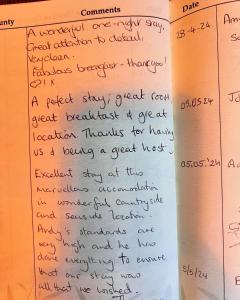 Comments
Date
A wonderful one-night stay.
Great attention to detail,
Very clean.
Fabulous breakfast - thank you!
28-4-24.
A perfect stay; great room
great breakfast & great
location. Thanks for having
us & being a great host :)
05.05.24
Excellent stay at this
marvellous accomodation
in wonderful countryside
and seaside location.
Andy's standards are
very high and he has
done everything to ensure
that our stay was
all that we wished.
05.05.'24
5/5/24